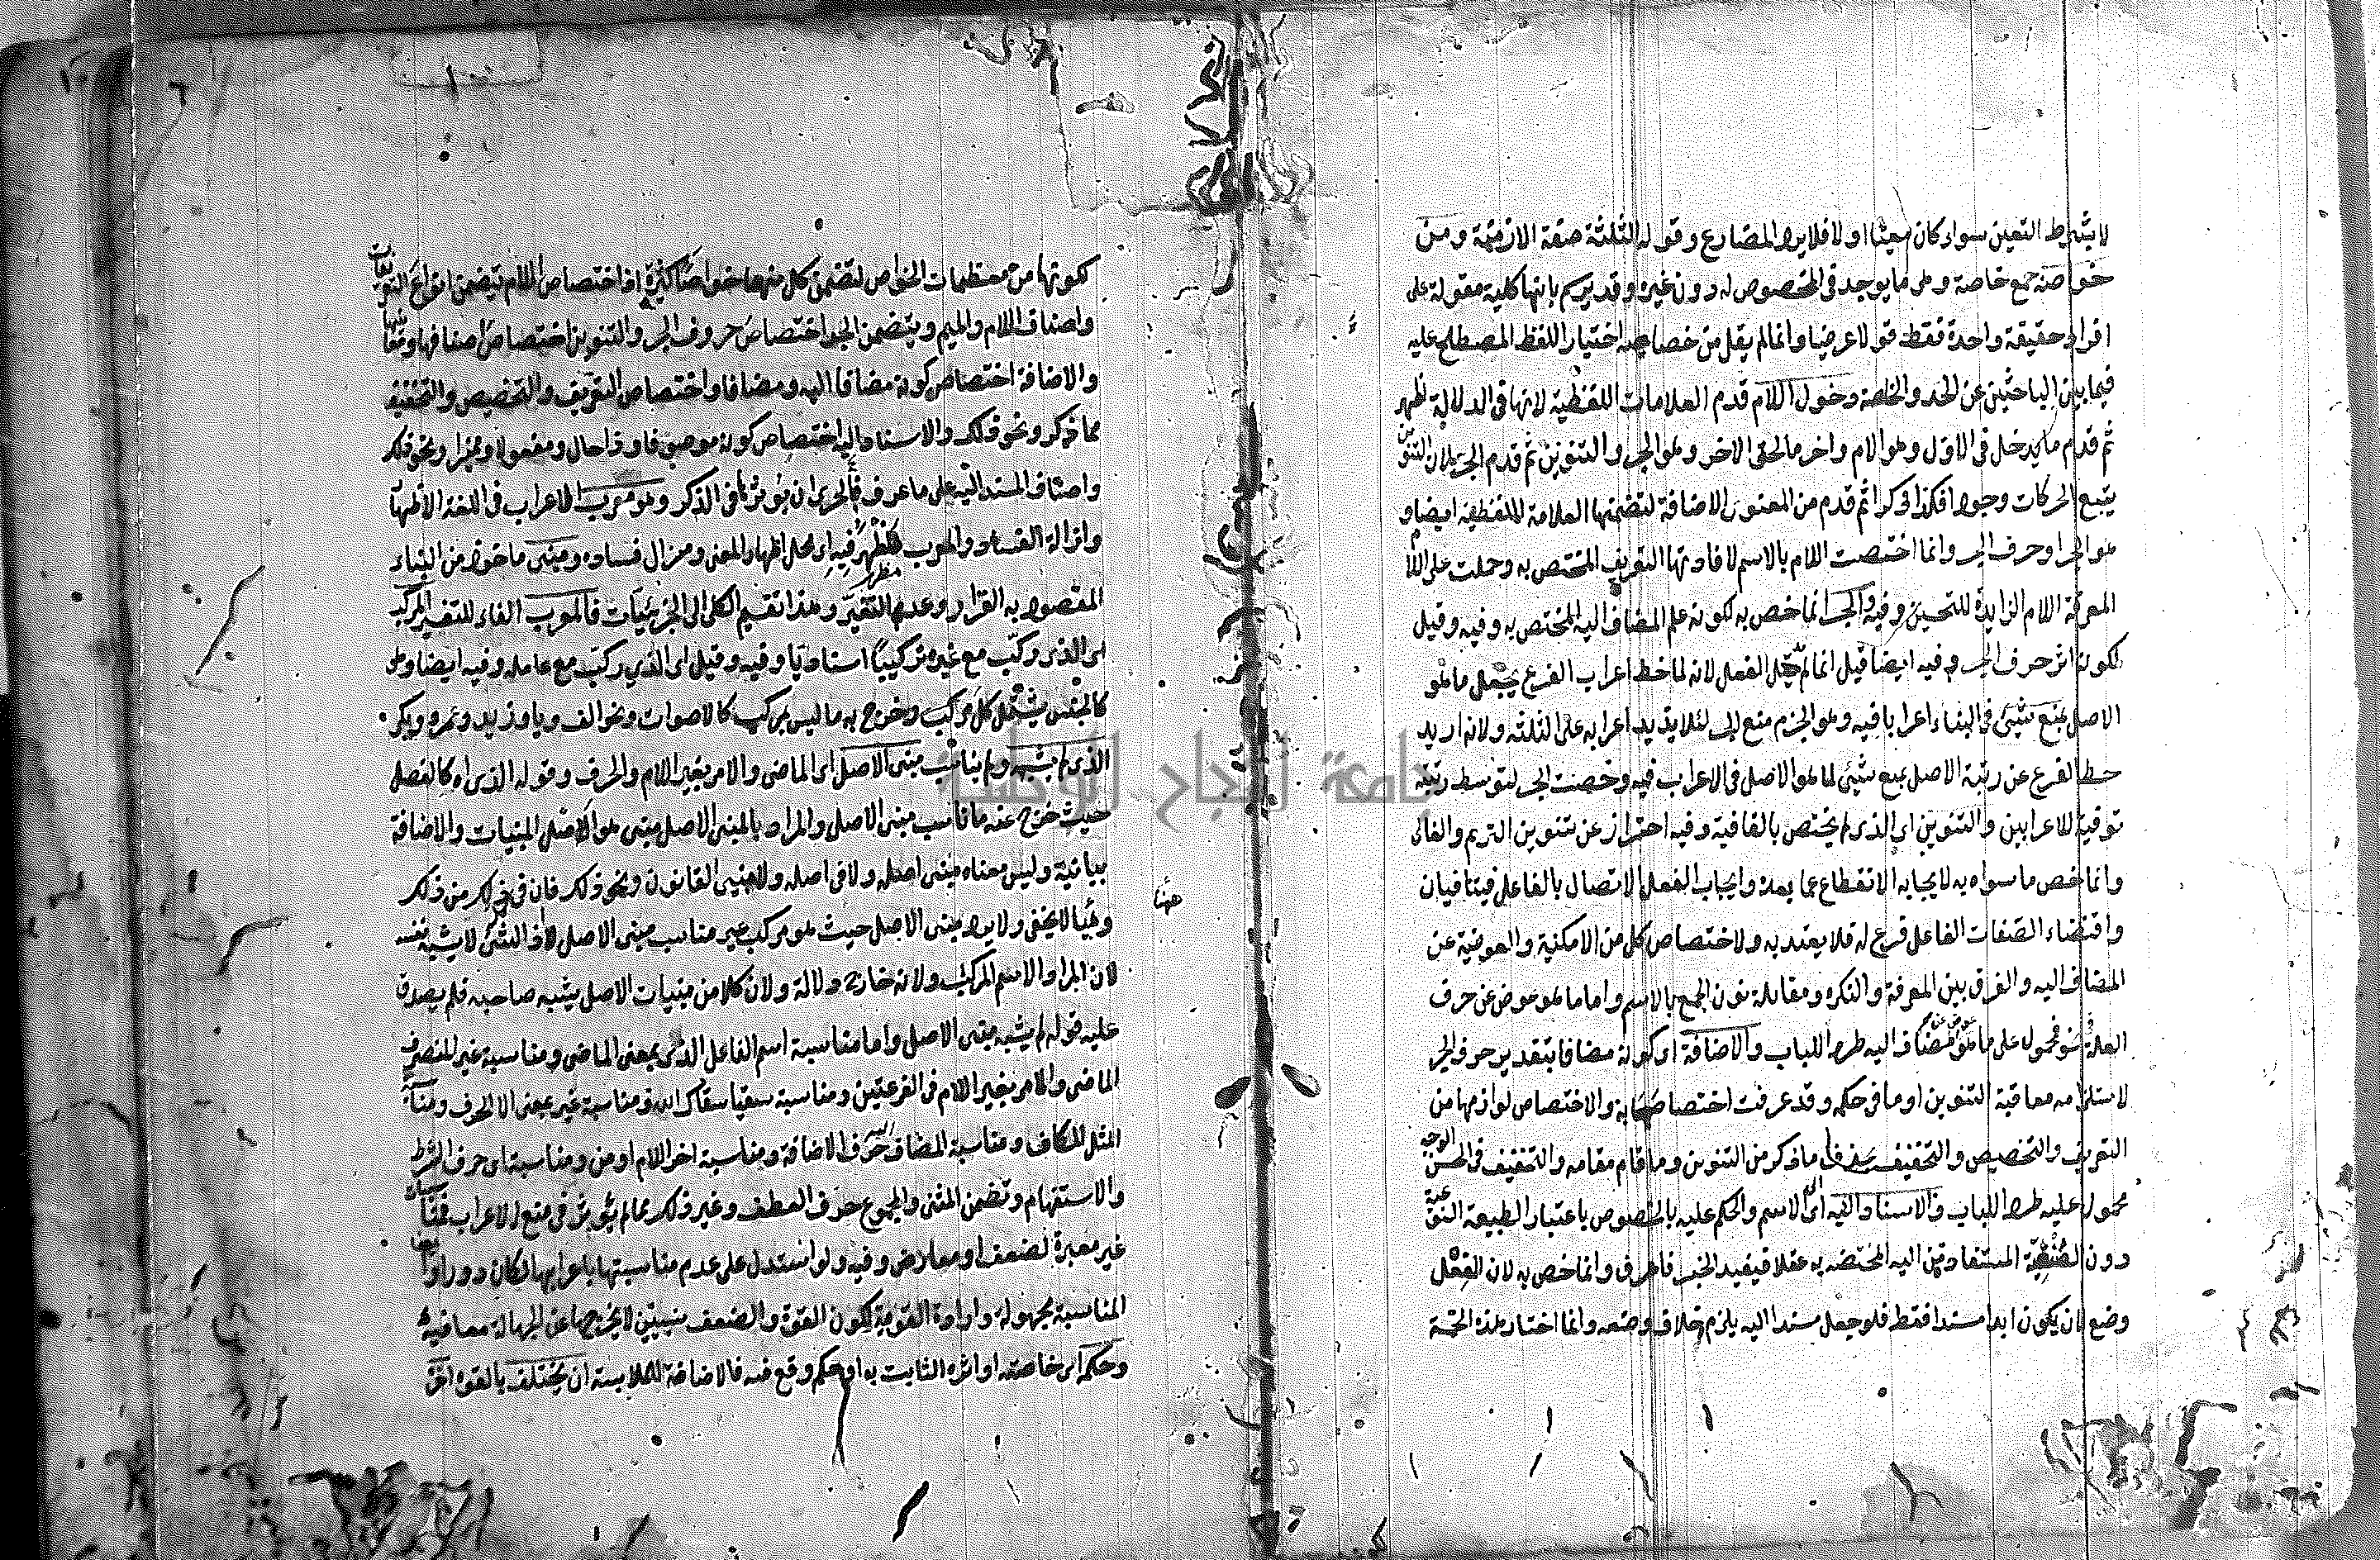 لا يشترط التعين سواء كان معينا او لا فلا يرد المضارع وقوله الثلثة صفة الازمنة ومن
خواصه جمع خاصة وهى ما يوجد فى المخصوص له دون غيره وقد يرسم بانها كلية مقولة على
افراد حقيقة واحدة فقط قولا عرضيا وانما لم يقل من خصايصه اختيار اللفظ المصطلح عليه
فيما بين الباحثين عن الحد والخاصة دخول اللام قدم العلامات اللفظية لانها فى الدلالة اظهر
ثم قدم ما يدخل فى الاول وهو اللام واخر ما لحق الاخر وهو الجر والتنوين ثم قدم الجر لان التنوين
يتبع الحركات وجودا فكذا ذكرا ثم قدم من المعنوى الاضافة لتضمنها العلامة اللفظية ايضا و
هو الجر او حرف الجر وانما اختصت اللام بالاسم لافادتها التعريف المختص به وحملت على اللام
المعرفة اللام الزايدة للتحسين وفيه والجر انما خص به لكونه علم المضاف اليه المختص به وفيه وقيل
لكونه اثر حرف الجر وفيه ايضا قيل انما لم يجر الفعل لانه لما حط اعراب الفرع بجعل ما هو
الاصل بمنع شيئ فى البناء اعرابا فيه وهو الجزم منع الجر لئلا يزيد اعرابه على الثلثة ولانه اريد
حط الفرع عن رتبة الاصل بمنع شيئ لما هو الاصل فى الاعراب فيه وخصت الجر لتوسط رتبته
توفية للاعرابين والتنوين اى الذى لم يختص بالقافية وفيه احتراز عن تنوين الترنم والغالى
وانما خص ما سواه به لايجابه الانقطاع عما بعده وايجاب الفعل الاتصال بالفاعل فيتنافيان
واقتضاء الصفات الفاعل فرع له فلا يعتد به ولاختصاص كل من الامكنية والعوضية عن
المضاف اليه والفرق بين المعرفة والنكرة ومقابلة نون الجمع بالاسم واما ما هو عوض عن حرف
العلة فمحمول على ما هو عوض عن المضاف اليه طردا للباب والاضافة اى كونه مضافا بتقدير حرف الجر
لاستلزامه معاقبة التنوين او ما فى حكمه وقد عرفت اختصاصهما به والاختصاص لوازمها من
التعريف والتخصيص والتخفيف بحذف ما ذكر من التنوين وما قام مقامه والتخفيف فى الحسن الوجه
محمول عليه طردا للباب والاسناد اليه اى الى الاسم والحكم عليه بالخصوص باعتبار الطبيعة النوعية
دون الصنفية المستفاد من اليه المختصة به عقلا فيفيد الخبر فاعرف وانما خص به لان الفعل
وضع لان يكون ابدا مسندا فقط فلو جعل مسندا اليه يلزم خلاف وضعه وانما اختار هذه الخمسة
لكونها من معظمات الخواص لتضمن كل منها خواصا كثيرة اذ اختصاص اللام يتضمن انواع التعريفات
واصناف اللام والميم ويتضمن الجر اختصاص حروف الجر والتنوين اختصاص اصنافها
والاضافة اختصاص كونه مضافا اليه ومضافا واختصاص التعريف والتخصيص والتخفيف
مما ذكر ونحو ذلك والاسناد اليه اختصاص كونه موصوفا وذا حال ومفعولا ومميزا ونحو ذلك
واصناف المسند اليه على ما عرف فالحرى ان يؤثر ما فى الذكر وهو معرب الاعراب فى اللغة الاظهار
وازالة الفساد والمعرب مظهر فيه اى محل اظهار المعنى ومزال فساده ومبنى ماخوذ من البناء
المقصود به القرار وعدم التغير وهذا تقسيم الكلى الى الجزئيات فالمعرب الفاء للتفسير المركب
اى الذى ركب مع غيره تركيبا اسناديا وفيه وقيل اى الذى ركب مع عامله وفيه ايضا وهو
كالجنس يشتمل كل مركب وخرج به ما ليس بمركب كالاصوات ونحو الف ويا وزيد وعمرو وبكر
الذى لم يشبه ولم يناسب مبنى الاصل اى الماضى والامر بغير اللام والحرف وقوله الذى اه كالفصل
حيث خرج عنه ما ناسب مبنى الاصل والمراد بالمبنى الاصل مبنى هو الاصل المبنيات والاضافة
بيانية وليس معناه مبنى اصله ولا فى اصله ونحو ذلك فان فى كل من ذلك
ههنا
لا يخفى ولا يرد مبنى الاصل حيث هو مركب غير مناسب مبنى الاصل اذ الشئ لا يشبه نفسه
لان المراد الاسم المركب ولانه خارج دلالة ولان كلا من مبنيات الاصل يشبه صاحبه فلم يصدق
عليه قوله لم يشبه مبنى الاصل واما مناسبة اسم الفاعل الذى بمعنى الماضى ومناسبة غير المنصرف
الماضى والامر بغير اللام فى الفرعيتين ومناسبة سقيا سقاك الله ومناسبة غير بمعنى الا الحرف ومناسبة
المثل للكاف ومناسبة المضاف حرف الاضافة ومناسبة اخر اللام او من ومناسبة اى حرف الشرط
والاستفهام وتضمن المثنى والمجموع حرف العطف وغير ذلك مما لم يؤثر فى منع الاعراب فمناسبات
غير معبرة لضعف او معارض وفيه ولو استدل على عدم مناسبتها باعرابها لكان دورا
المناسبة مجهولة وارادة القوية لكون القوة والضعف نسبيين لا يخرجها عن الجهالة
وحكمه اى خاصته او اثره الثابت به او حكم وقع فيه فالاضافة للملابسة ان يختلف بالقوة اخره